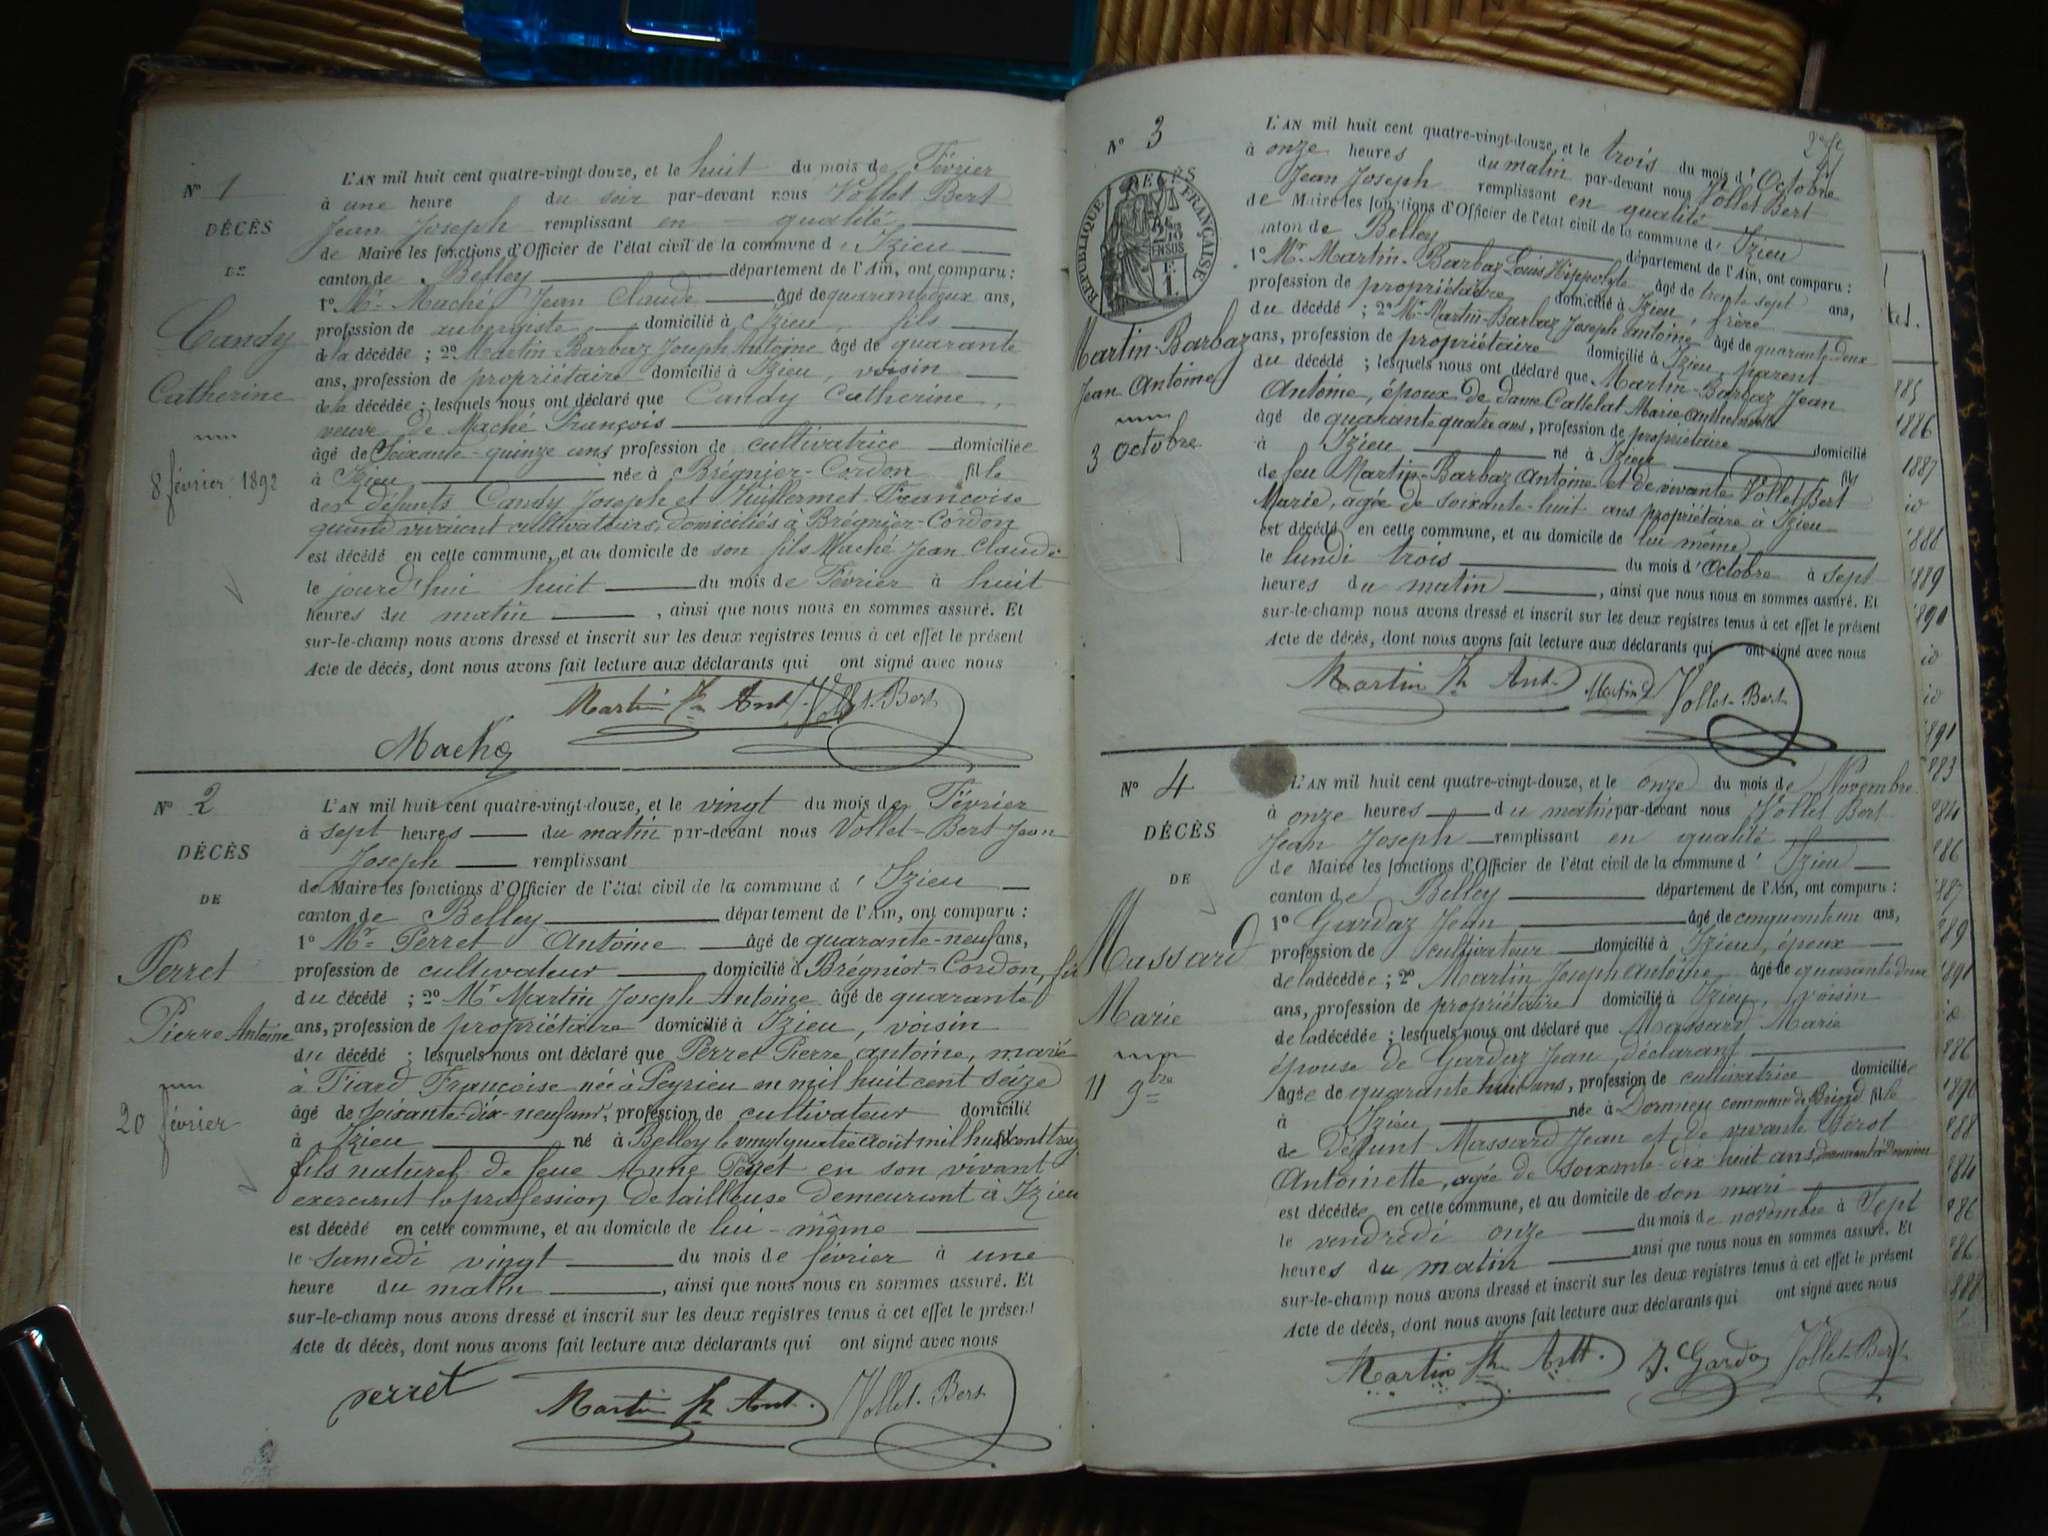 N° 1
DÉCÈS
DE
Candy
Catherine
8 février 1892
L'AN mil huit cent quatre-vingt-douze, et le huit du mois de Février
à une heure du soir par-devant nous Vollet Bert
Jean Joseph remplissant en qualité
de Maire les fonctions d'Officier de l'état civil de la commune d' Izieu
canton de Belley département de l'Ain, ont comparu :
1° Mr Maché Jean Claude âgé de quarante deux ans,
profession de aubergiste domicilié à Izieu, fils
de la décédée ; 2° Martin Barbaz Joseph Antoine âgé de quarante
ans, profession de propriétaire domicilié à Izieu, voisin
de la décédée ; lesquels nous ont déclaré que Candy Catherine,
veuve de Maché François
âgé de Soixante-quinze ans profession de cultivatrice domiciliée
à Izieu née à Brégnier-Cordon fille
des défunts Candy Joseph et Vuillermet Françoise
quand vivaient cultivateurs, domiciliés à Brégnier-Cordon
est décédé en cette commune, et au domicile de son fils Maché Jean Claude
le jourd'hui huit du mois de Février à huit
heures du matin , ainsi que nous nous en sommes assuré. Et
sur-le-champ nous avons dressé et inscrit sur les deux registres tenus à cet effet le présent
Acte de décès, dont nous avons fait lecture aux déclarants qui ont signé avec nous
Martin Ph Ant. Vollet-Bert
Maché
N° 2
DÉCÈS
DE
Perret
Pierre Antoine
20 février
L'AN mil huit cent quatre-vingt-douze, et le vingt du mois de Février
à sept heures du matin par-devant nous Vollet-Bert Jean
Joseph remplissant
de Maire les fonctions d'Officier de l'état civil de la commune d' Izieu
canton de Belley département de l'Ain, ont comparu :
1° Mr Perret Antoine âgé de quarante-neuf ans,
profession de cultivateur domicilié à Brégnier-Cordon,
du décédé ; 2° Mr Martin Joseph Antoine âgé de quarante
ans, profession de propriétaire domicilié à Izieu, voisin
du décédé ; lesquels nous ont déclaré que Perret Pierre antoine, marié
à Tiard Françoise née à Peyrieu en mil huit cent seize
âgé de soixante-dix-neuf ans, profession de cultivateur domicilié
à Izieu né à Belley le vingt quatre août mil huit cent treize
fils naturel de feue Anne Perret en son vivant
exercant la profession de tailleuse demeurant à Izieu
est décédé en cette commune, et au domicile de lui-même
le samedi vingt du mois de février à une
heure du matin , ainsi que nous nous en sommes assuré. Et
sur-le-champ nous avons dressé et inscrit sur les deux registres tenus à cet effet le présent
Acte de décès, dont nous avons fait lecture aux déclarants qui ont signé avec nous
perret Martin Ph Ant. Vollet-Bert
N° 3
DÉCÈS
RÉPUBLIQUE FRANÇAISE
Martin-Barbaz
Jean Antoine
3 octobre
L'AN mil huit cent quatre-vingt-douze, et le trois du mois d' Octobre
à onze heures du matin par-devant nous Vollet Bert
Jean Joseph remplissant en qualité
de Maire les fonctions d'Officier de l'état civil de la commune d' Izieu
canton de Belley département de l'Ain, ont comparu :
1° Mr Martin-Barbaz Louis Hippolyte âgé de trente sept ans,
profession de propriétaire domicilié à Izieu, frère
du décédé ; 2° Mr Martin-Barbaz Joseph Antoine âgé de quarante-deux
ans, profession de propriétaire domicilié à Izieu, parent
du décédé ; lesquels nous ont déclaré que Martin-Barbaz Jean
Antoine, époux de dame Cattelat Marie Anthelmette
âgé de quarante quatre ans, profession de propriétaire domicilié
à Izieu né à Izieu fils
de feu Martin-Barbaz Antoine et de vivante Vollet Bert
Marie, agée de soixante-huit ans propriétaire à Izieu
est décédé en cette commune, et au domicile de lui même
le lundi trois du mois d' Octobre à sept
heures du matin , ainsi que nous nous en sommes assuré. Et
sur-le-champ nous avons dressé et inscrit sur les deux registres tenus à cet effet le présent
Acte de décès, dont nous avons fait lecture aux déclarants qui ont signé avec nous
Martin Ph Ant. Martin Vollet-Bert
N° 4
DÉCÈS
DE
Massard
Marie
11 9bre
L'AN mil huit cent quatre-vingt-douze, et le onze du mois de Novembre
à onze heures du matin par-devant nous Vollet Bert
Jean Joseph remplissant en qualité
de Maire les fonctions d'Officier de l'état civil de la commune d' Izieu
canton de Belley département de l'Ain, ont comparu :
1° Gardaz Jean âgé de cinquante un ans,
profession de cultivateur domicilié à Izieu, époux
de la décédée ; 2° Martin Joseph Antoine âgé de quarante deux
ans, profession de propriétaire domicilié à Izieu, voisin
de la décédée ; lesquels nous ont déclaré que Massard Marie
épouse de Gardaz Jean, déclarant
âgée de quarante huit ans, profession de cultivatrice domiciliée
à Izieu née à Dornieu commune de fille
de défunt Massard Jean et de vivante Férot
Antoinette, agée de soixante-dix huit ans,
est décédée en cette commune, et au domicile de son mari
le vendredi onze du mois de novembre à Sept
heures du matin ainsi que nous nous en sommes assuré. Et
sur-le-champ nous avons dressé et inscrit sur les deux registres tenus à cet effet le présent
Acte de décès, dont nous avons fait lecture aux déclarants qui ont signé avec nous
Martin Ph Antt. J. Gardaz Vollet-Bert